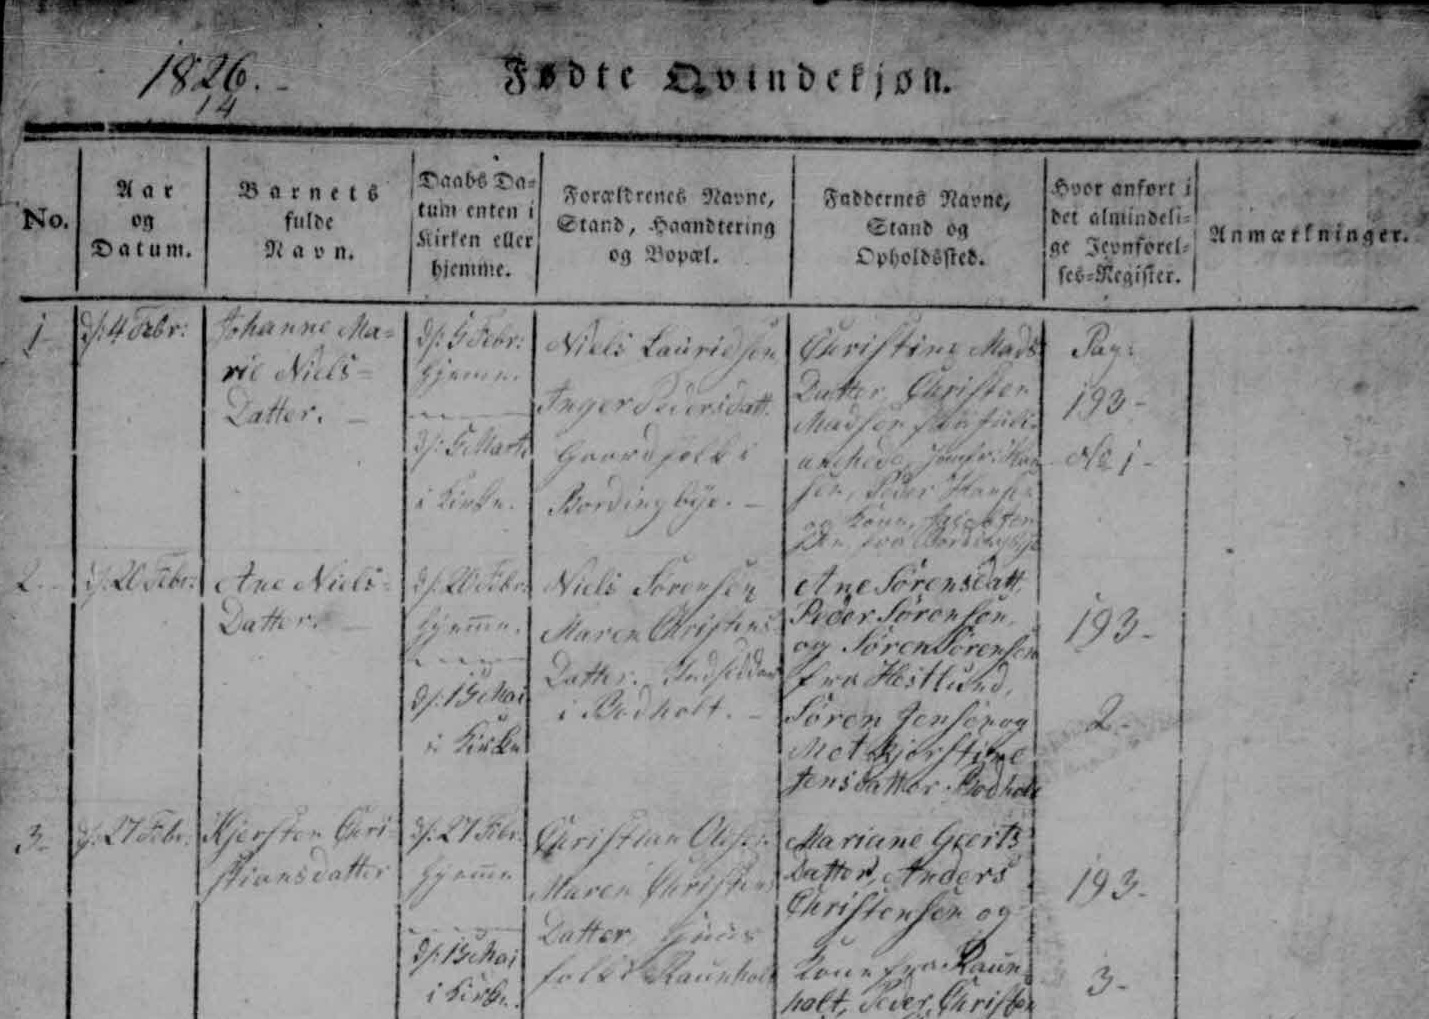 1826.
14
Fødte Qvindekjøn.
No.
Aar
og
Datum.
Barnets
fulde
Navn.
Daabs Da=
tum enten i
Kirken eller
hjemme.
Forældrenes Navne,
Stand, Haandtering
og Bopæl.
Faddernes Navne,
Stand og
Opholdssted.
Hvor anført i
det almindeli=
ge Jevnførel=
ses=Register.
Anmærkninger.
1
d: 4 Febr:
Johanne Ma=
rie Niels=
Datter.
d: 5 Febr:
Hjemme.
d: 5 Marts
i Kirken.
Niels Lauridsen
Inger Pedersdatt.
Gaardfolk i
Bordingbye.
Christine Mads
Datter, Christen
Madsen
Peder Hansen
og Kone,
fra Bordingbye
Pag:
193-
No 1-
2
d: 20 Febr:
Ane Niels=
Datter.
d: 20 Febr:
Hjemme.
d: 15 Mai
i Kirken
Niels Sørensen
Maren Christens
Datter. Indsidder
i Bodholt.
Ane Sørensdatt.
Peder Sørensen,
og Søren Sørensen
fra Hestlund,
Søren Jensen og
Met Kjerstine
Jensdatter Bodholt
193-
2-
3-
d: 27 Febr:
Kjersten Chri=
stiansdatter
d: 27 Febr:
Hjemme
d: 15 Mai
i Kirken.
Christian Olesen
Maren Christens
Datter, Huus
folk i Raunholt
Mariane Geerts
Datter, Anders
Christensen og
Kone fra Raun=
holt, Peder Christen
193-
3-